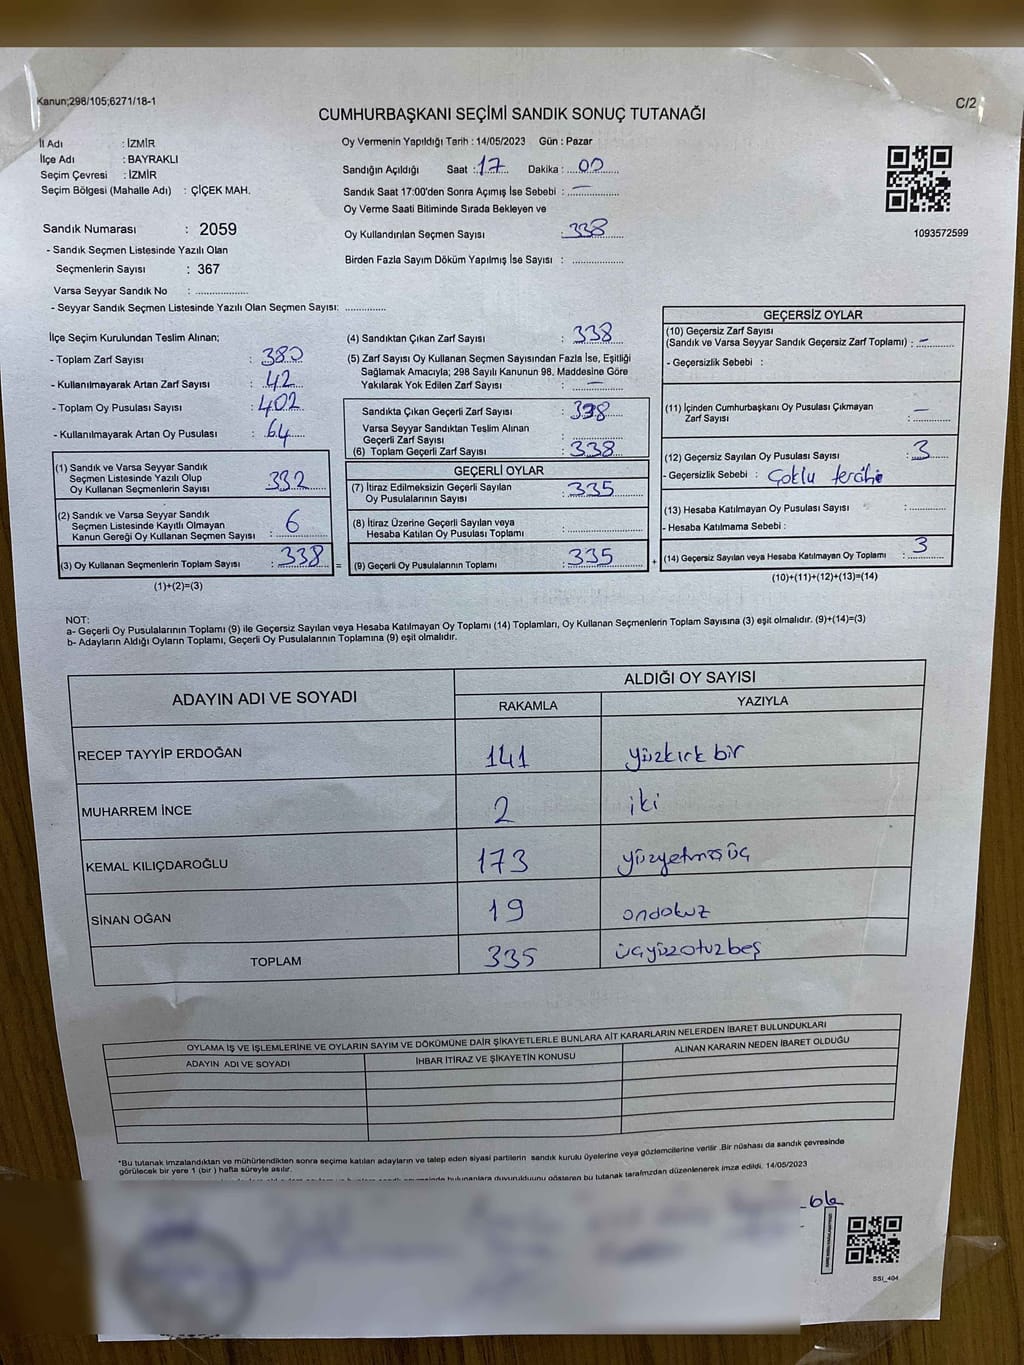 Kanun;298/105;6271/18-1
C/2
CUMHURBAŞKANI SEÇİMİ SANDIK SONUÇ TUTANAĞI
İl Adı : İZMİR
İlçe Adı : BAYRAKLI
Seçim Çevresi : İZMİR
Seçim Bölgesi (Mahalle Adı) : ÇİÇEK MAH.
Oy Vermenin Yapıldığı Tarih : 14/05/2023 Gün : Pazar
Sandığın Açıldığı Saat : 17 Dakika : 00
Sandık Saat 17:00'den Sonra Açımış İse Sebebi : —
Oy Verme Saati Bitiminde Sırada Bekleyen ve
Oy Kullandırılan Seçmen Sayısı : 338
Birden Fazla Sayım Döküm Yapılmış İse Sayısı : ..............
1093572599
Sandık Numarası : 2059
- Sandık Seçmen Listesinde Yazılı Olan
Seçmenlerin Sayısı : 367
Varsa Seyyar Sandık No : ..............
- Seyyar Sandık Seçmen Listesinde Yazılı Olan Seçmen Sayısı: ...........
İlçe Seçim Kurulundan Teslim Alınan;
- Toplam Zarf Sayısı : 380
- Kullanılmayarak Artan Zarf Sayısı : 42
- Toplam Oy Pusulası Sayısı : 402
- Kullanılmayarak Artan Oy Pusulası : 64
(1) Sandık ve Varsa Seyyar Sandık
Seçmen Listesinde Yazılı Olup
Oy Kullanan Seçmenlerin Sayısı : 332
(2) Sandık ve Varsa Seyyar Sandık
Seçmen Listesinde Kayıtlı Olmayan
Kanun Gereği Oy Kullanan Seçmen Sayısı : 6
(3) Oy Kullanan Seçmenlerin Toplam Sayısı : 338
(1)+(2)=(3)
=
(4) Sandıktan Çıkan Zarf Sayısı : 338
(5) Zarf Sayısı Oy Kullanan Seçmen Sayısından Fazla İse, Eşitliği
Sağlamak Amacıyla; 298 Sayılı Kanunun 98. Maddesine Göre
Yakılarak Yok Edilen Zarf Sayısı : —
Sandıkta Çıkan Geçerli Zarf Sayısı : 338
Varsa Seyyar Sandıktan Teslim Alınan
Geçerli Zarf Sayısı : ..............
(6) Toplam Geçerli Zarf Sayısı : 338
GEÇERLİ OYLAR
(7) İtiraz Edilmeksizin Geçerli Sayılan
Oy Pusulalarının Sayısı : 335
(8) İtiraz Üzerine Geçerli Sayılan veya
Hesaba Katılan Oy Pusulası Toplamı : ..............
(9) Geçerli Oy Pusulalarının Toplamı : 335
+
GEÇERSİZ OYLAR
(10) Geçersiz Zarf Sayısı
(Sandık ve Varsa Seyyar Sandık Geçersiz Zarf Toplamı) : —
- Geçersizlik Sebebi :
(11) İçinden Cumhurbaşkanı Oy Pusulası Çıkmayan
Zarf Sayısı : —
(12) Geçersiz Sayılan Oy Pusulası Sayısı : 3
- Geçersizlik Sebebi : Çoklu tercihi
(13) Hesaba Katılmayan Oy Pusulası Sayısı : ...........
- Hesaba Katılmama Sebebi :
(14) Geçersiz Sayılan veya Hesaba Katılmayan Oy Toplamı : 3
(10)+(11)+(12)+(13)=(14)
NOT:
a- Geçerli Oy Pusulalarının Toplamı (9) ile Geçersiz Sayılan veya Hesaba Katılmayan Oy Toplamı (14) Toplamları, Oy Kullanan Seçmenlerin Toplam Sayısına (3) eşit olmalıdır. (9)+(14)=(3)
b- Adayların Aldığı Oyların Toplamı, Geçerli Oy Pusulalarının Toplamına (9) eşit olmalıdır.
ADAYIN ADI VE SOYADI ALDIĞI OY SAYISI
RAKAMLA YAZIYLA
RECEP TAYYİP ERDOĞAN 141 yüzkırk bir
MUHARREM İNCE 2 iki
KEMAL KILIÇDAROĞLU 173 yüzyetmişüç
SİNAN OĞAN 19 ondokuz
TOPLAM 335 üçyüzotuzbeş
OYLAMA İŞ VE İŞLEMLERİNE VE OYLARIN SAYIM VE DÖKÜMÜNE DAİR ŞİKAYETLERLE BUNLARA AİT KARARLARIN NELERDEN İBARET BULUNDUKLARI
ADAYIN ADI VE SOYADI İHBAR İTİRAZ VE ŞİKAYETİN KONUSU ALINAN KARARIN NEDEN İBARET OLDUĞU
*Bu tutanak imzalandıktan ve mühürlendikten sonra seçime katılan adayların ve talep eden siyasi partilerin sandık kurulu üyelerine veya gözlemcilerine verilir .Bir nüshası da sandık çevresinde
görülecek bir yere 1 (bir ) hafta süreyle asılır.
bulunanlara duyurulduunu gösteren bu tutanak tarafımzdan düzenlenerek imza edildi. 14/05/2023
SSİ_404